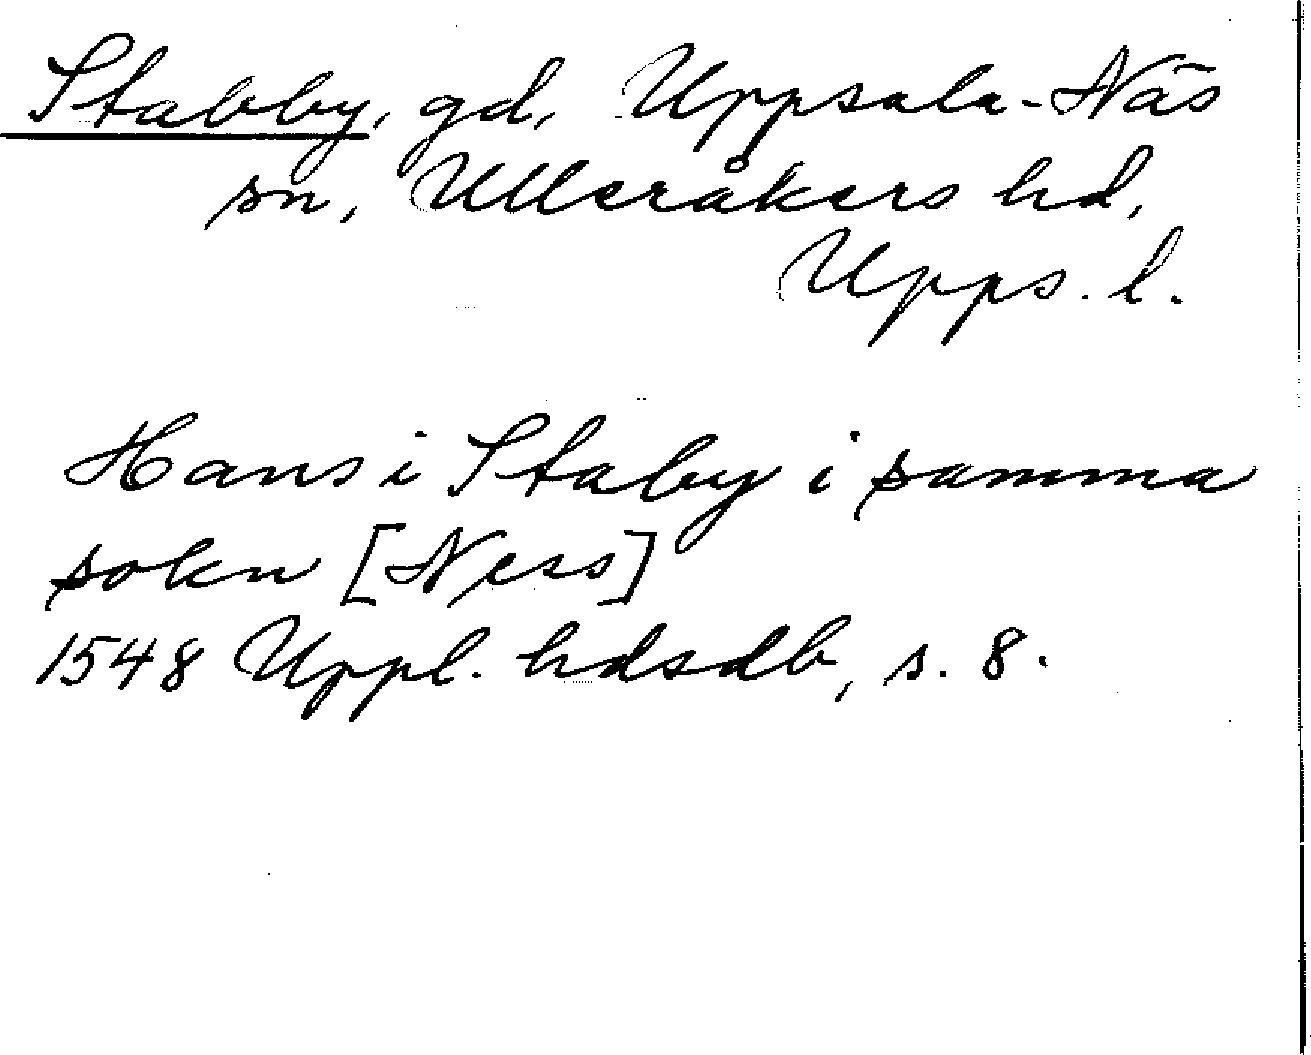 Stabby, gd, Uppsala-Näs
sn, Ulleråkers hd,
Upps. l.
Hans i Staby i samma
sokn [Ness]
1548 Uppl. hdsdb, s. 8.